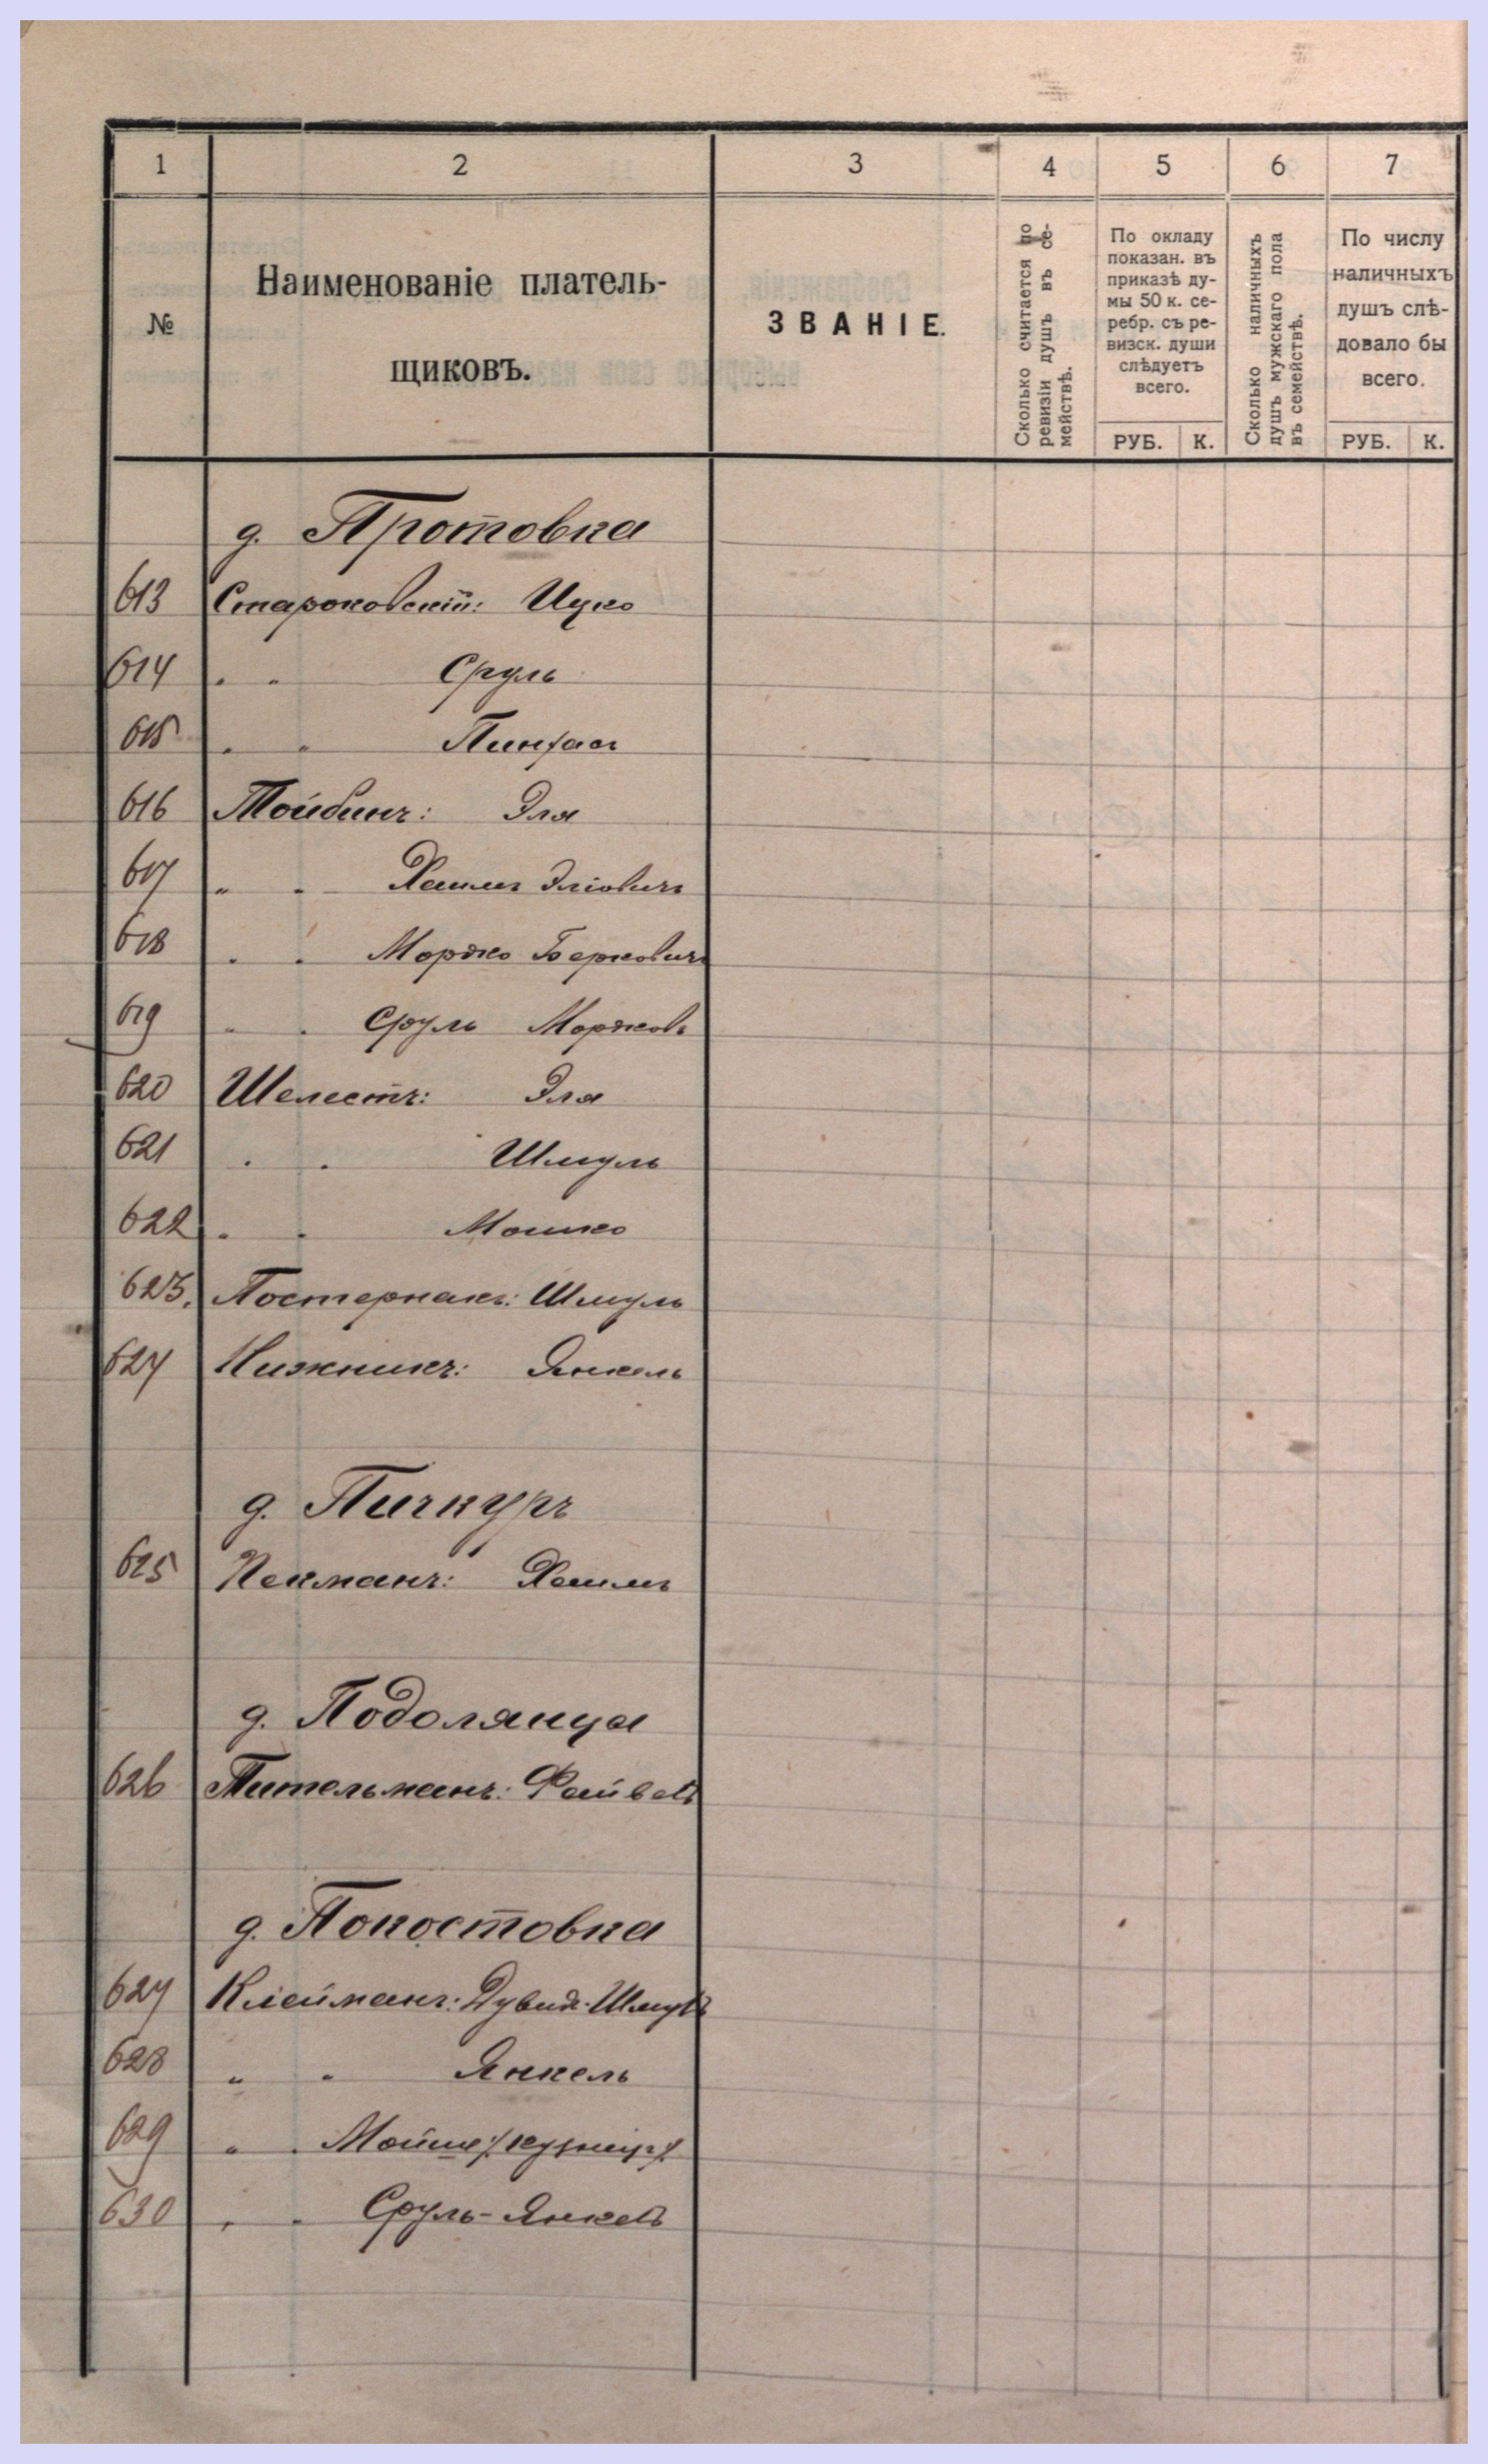 1 2 3 4 5 6 7
№
Наименованіе платель-
щиковъ.
ЗВАНІЕ.
Сколько считается по
ревизіи душъ въ се-
мействѣ.
По окладу
показан. въ
приказѣ ду-
мы 50 к. се-
ребр. съ ре-
визск. души
слѣдуетъ
всего.
РУБ. К.
Сколько наличныхъ
душъ мужскаго пола
въ семействѣ.
По числу
наличныхъ
душъ слѣ-
довало бы
всего.
РУБ. К.
д. Протовка
613 Староковскій: Ицко
614 " " Сруль
615 " " Пинхас
616 Тойбинъ: Эля
617 " " Хаимъ Эліовичъ
618 " " Мордко Берковичъ
619 " " Сруль Мордковъ
620 Шелестъ: Эля
621 " " Шмуль
622 " " Мошко
623. Постернакъ: Шмуль
624 Нижникъ: Янкель
д. Пичкуръ
625 Хаимъ
д. Подолянца
626 Тительманъ: Файвель
д. Покостовка
627 Клейманъ: Дувид-Шмуль
628 " " Янкель
629 " " Мойше /кузнецъ/
630 " " Сруль-Янкель